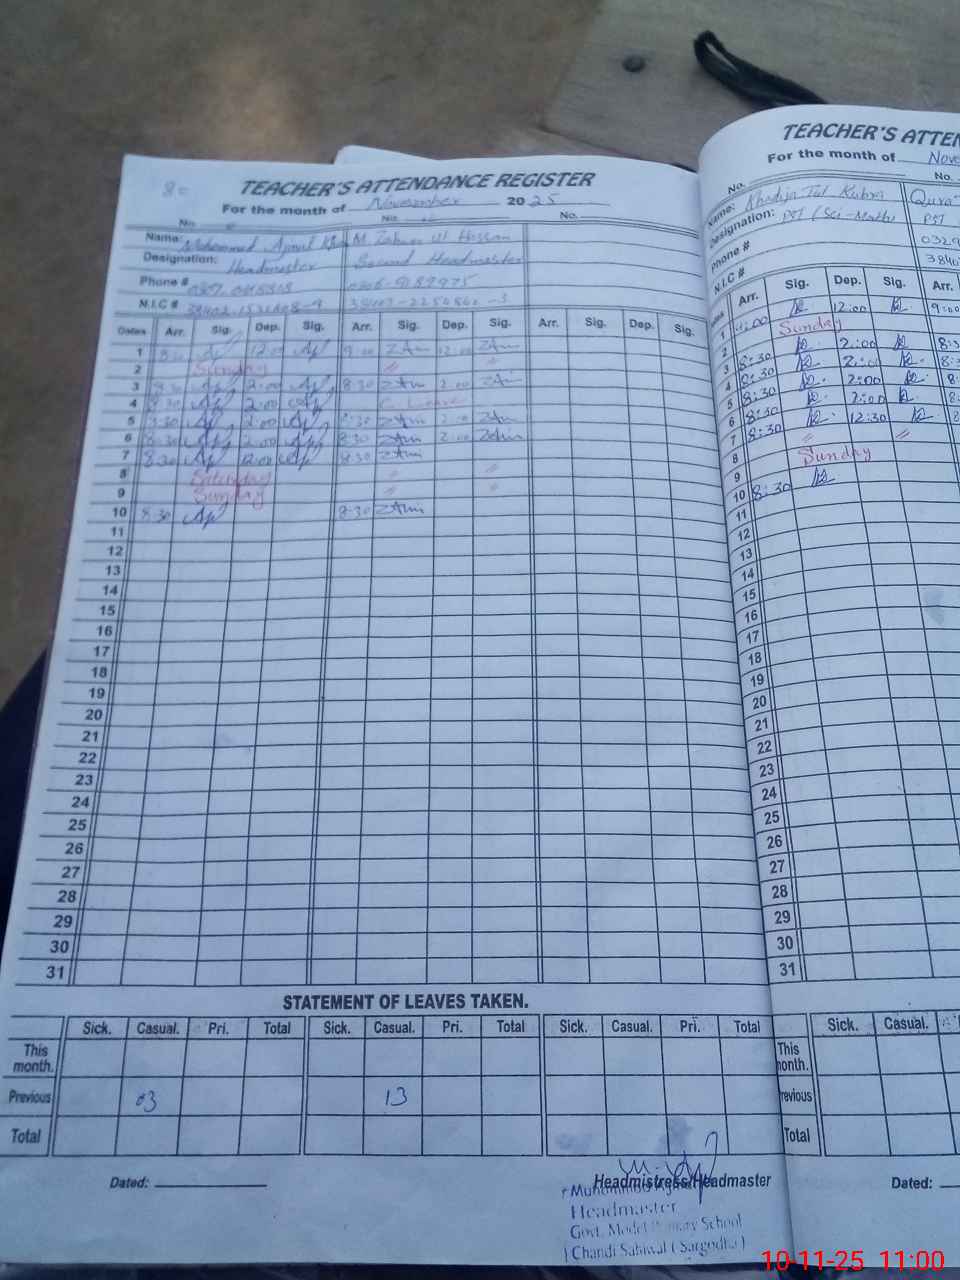 TEACHER'S ATTENDANCE REGISTER
For the month of November 2025
No. No. No.
Name: Mohammad Ajmal M. Zahoor Ul Hassan
Designation: Headmaster Second Headmaster
Phone #
N.I.C #
Dates Arr. Sig. Dep. Sig. Arr. Sig. Dep. Sig. Arr. Sig. Dep. Sig.
1 8:30 12:00 9:00 ZAm 12:00 ZAm
2 Sunday 〃 〃
3 8:30 2:00 8:30 ZAm 2:00 ZAm
4 8:30 2:00 C. Leave
5 8:30 2:00 8:30 ZAm 2:00 ZAm
6 8:30 2:00 8:30 ZAm 2:00 ZAm
7 8:30 12:00 8:30 ZAm
8 Saturday 〃 〃
9 Sunday 〃 〃
10 8:30 8:30 ZAm
11
12
13
14
15
16
17
18
19
20
21
22
23
24
25
26
27
28
29
30
31
STATEMENT OF LEAVES TAKEN.
Sick. Casual. Pri. Total Sick. Casual. Pri. Total Sick. Casual. Pri. Total
This month.
Previous 03 13
Total
Dated: Headmistress/Headmaster
Headmaster
Govt. Model Primary School
Chandi Sahiwal (Sargodha)
TEACHER'S ATTEN
For the month of Nove
No. No.
Name: Khadija Tul Kubra Qurat
Designation: PST (Sci-Math) PST
Phone # 0329
N.I.C # 3840
Dates Arr. Sig. Dep. Sig. Arr.
1 12:00 9:00
2 Sunday
3 8:30 2:00 8:3
4 8:30 2:00 8:
5 8:30 2:00 8:
6 8:30 2:00 8:
7 8:30 12:30 8:
8 〃 〃
9 Sunday
10 8:30
11
12
13
14
15
16
17
18
19
20
21
22
23
24
25
26
27
28
29
30
31
Sick. Casual.
This month.
Previous
Total
Dated:
10-11-25 11:00